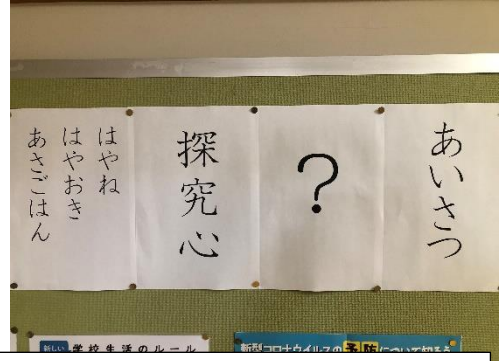 あいさつ
?
探究心
はやね
はやおき
あさごはん
新しい 学校生活のルール
新型コロナウイルスの予防について知ろう